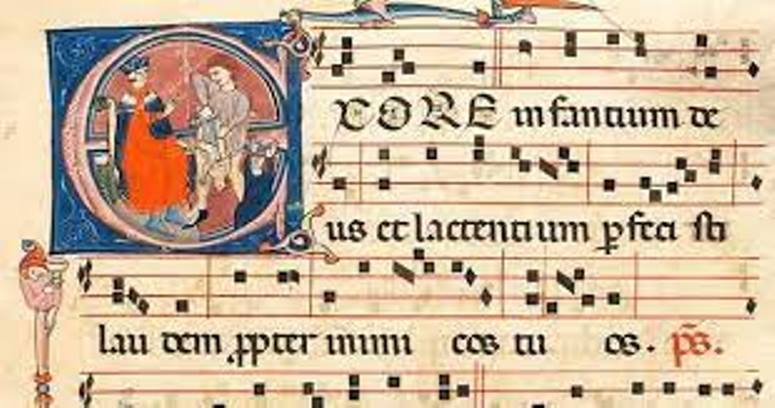 EX ORE in fantium de
us et lactentium ꝑfeci sti
lau dem ꝓpter inimi cos tu os. p̄s.